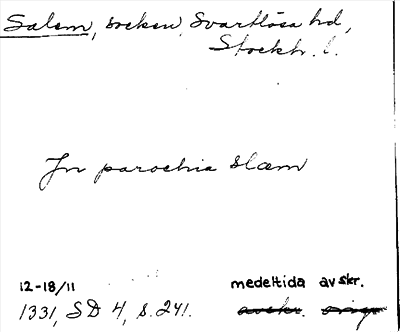 Salem, socken, Svartlösa hd,
Stockh. l.
In parochia Slæm
12-18/11 medeltida avskr.
1331, SD 4, s. 241. avskr. orig.